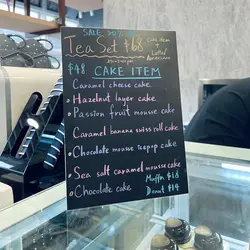 SALE 20%
Tea Set $68
cake item
+
Latte/
Americano
$48 CAKE ITEM
Caramel cheese cake
• Hazelnut layer cake
• Passion fruit mousse cake
Caramel banana swiss roll cake
• Chocolate mousse teapop cake
• Sea salt caramel mousse cake
• Chocolate cake
Muffin $18
Donut $14